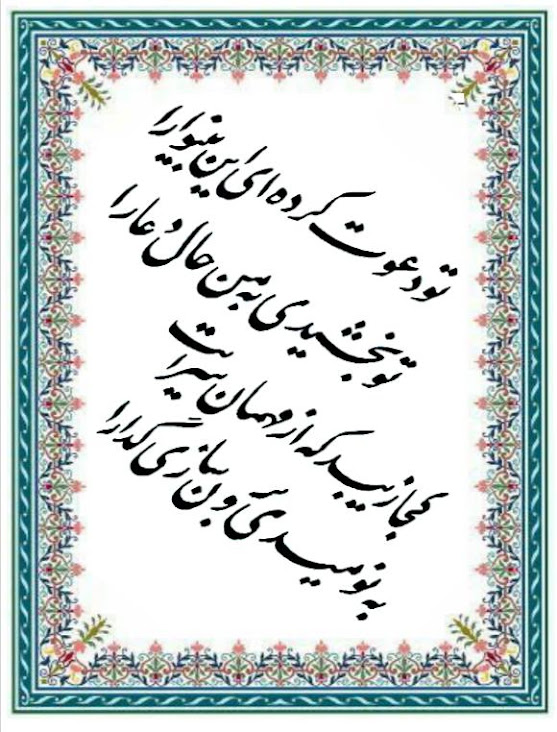 تو دعوت کرده ای این بینوا را
تو بخشیدی به من حال دعا را
کجا زیبد که از مهمان پذیرات
به نومیدی و بازگری گدا را